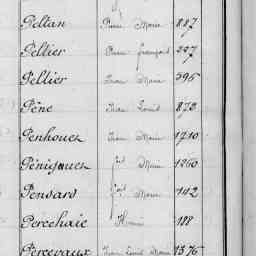 Peltan Pierre Marie 887
Pellier Pierre français 297
Pellier Jean Marie 395
Pêne Jean Louis 872
Penhouet Jean Marie 1710
Pénigouet Jph Marie 1260
Pensars Jph Marie 142
Percehaie Henri 188
Percevaux Jean Louis Marie 1376